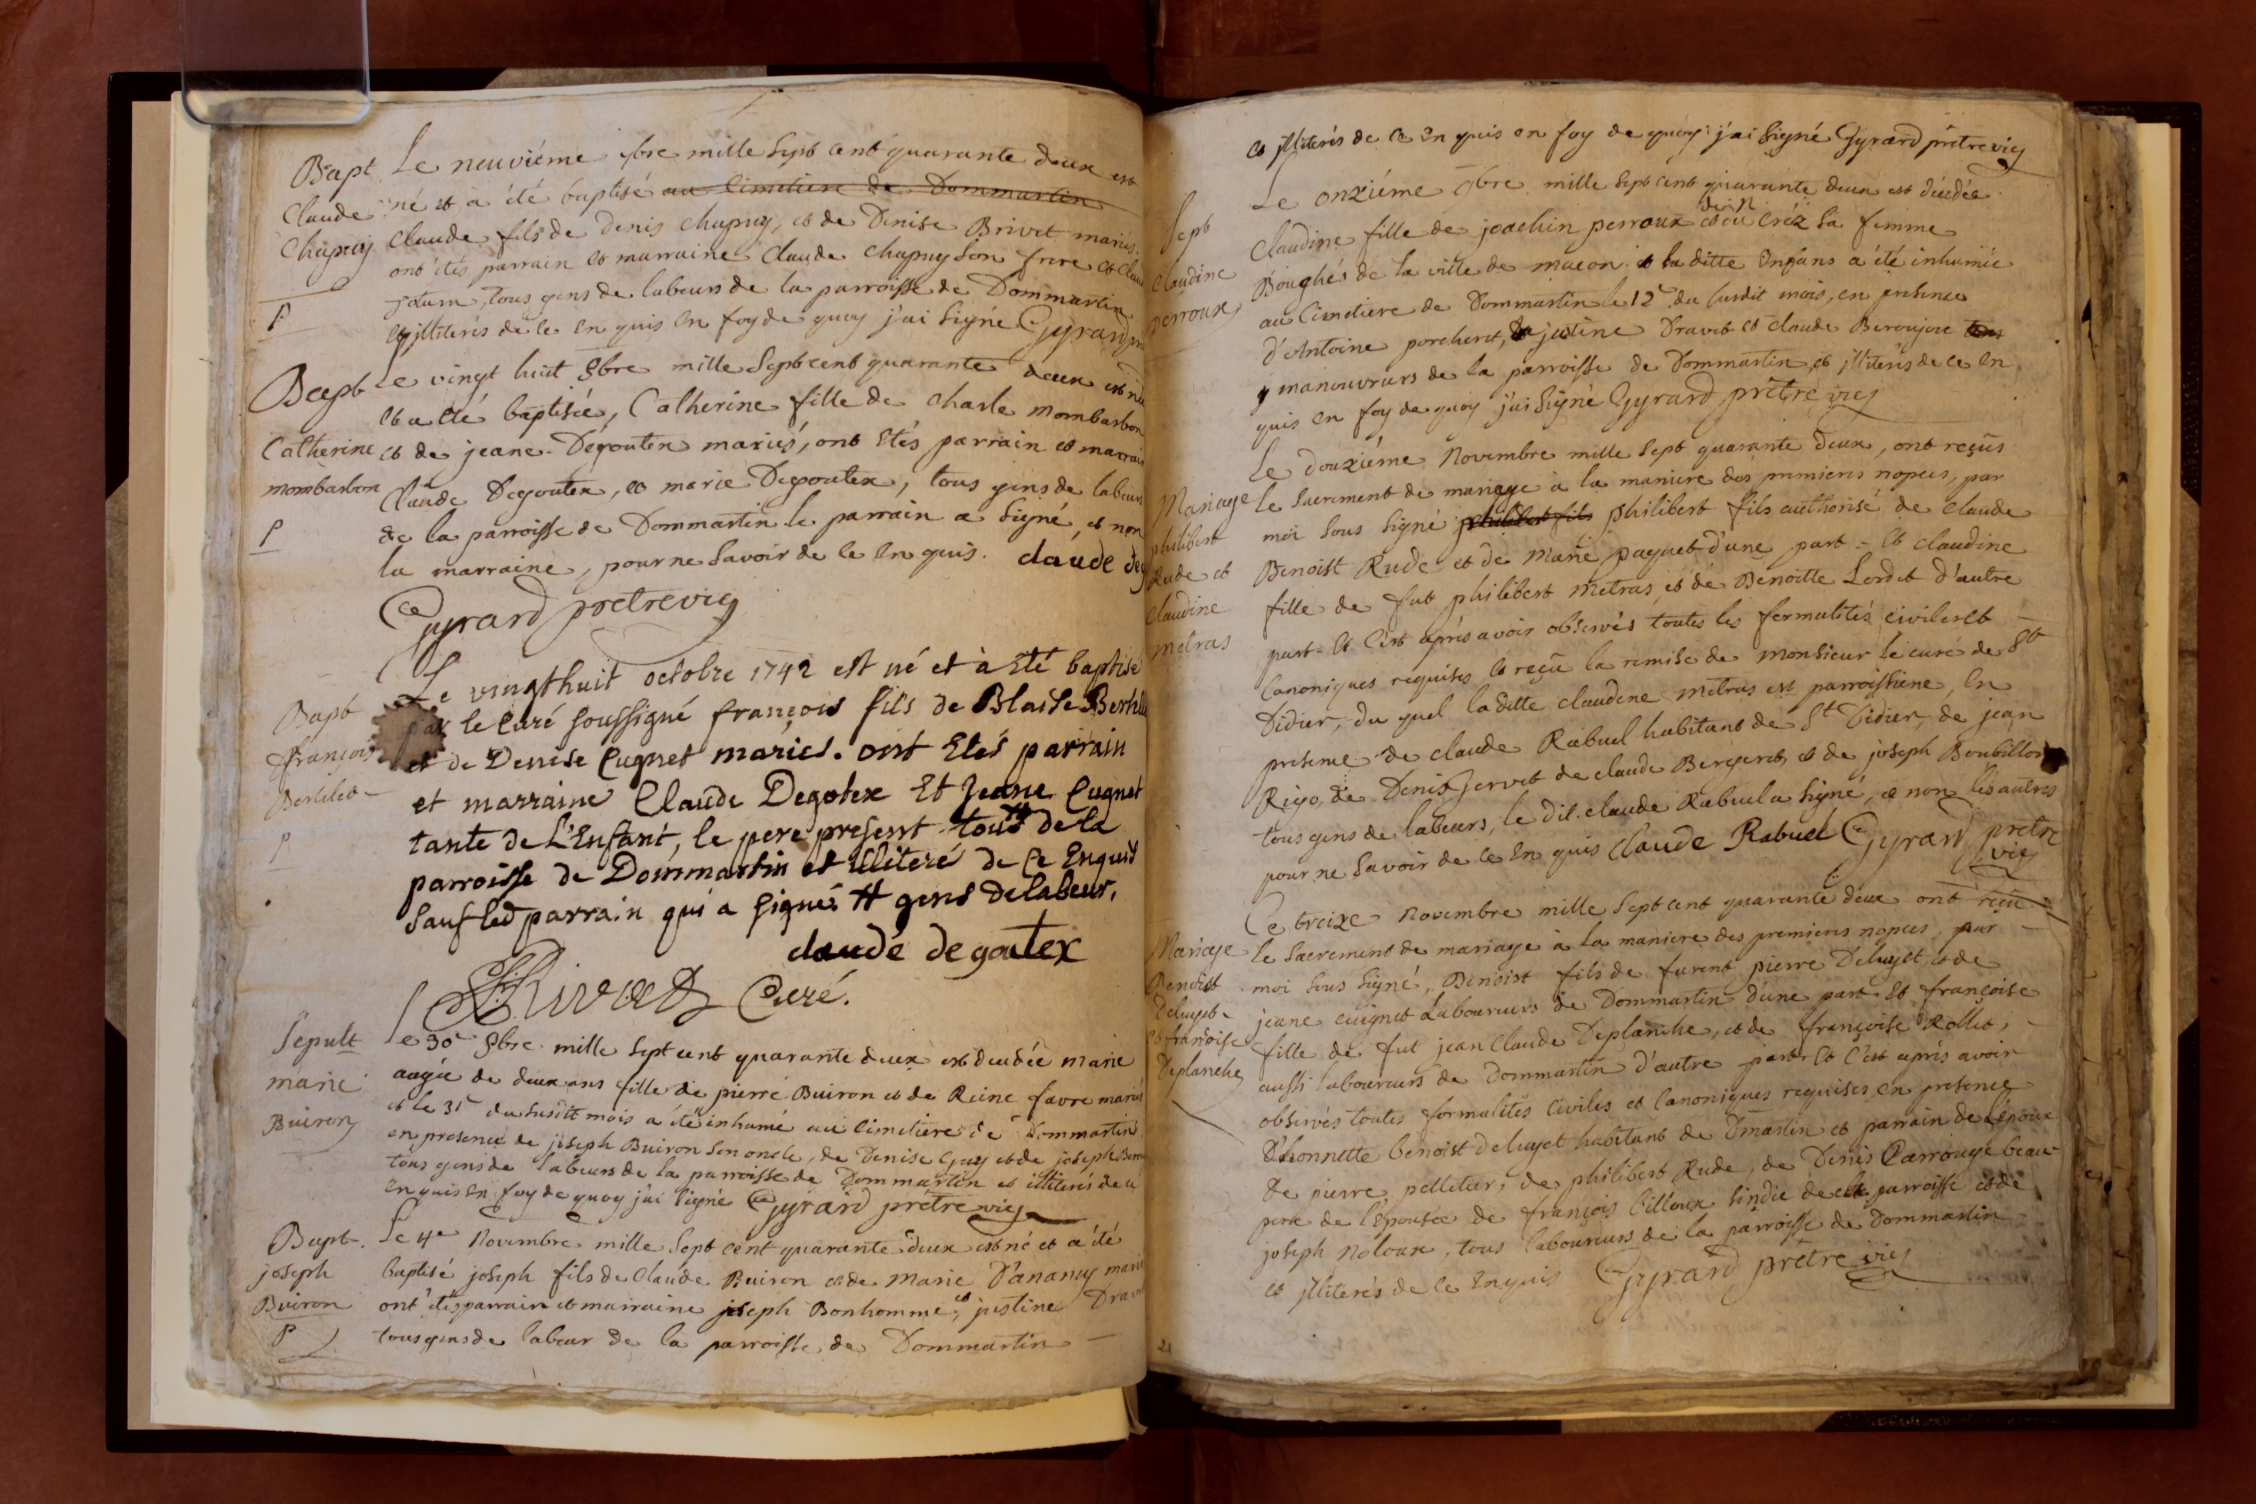 Bapt
Claude
Chapuy
P
Le neuviéme 8bre mille Sept cent quarante deux est
né et à été baptisé au Cimetiere de Dommartin
Claude fils de Denis Chapuy, et de Denise Brivet mariés.
ont étés parrain et marraine Claude Chapuy son frere et Clau
tous gens de labeurs de la parroisse de Dommartin
et jlliterés de ce enquis en foy de quoy j'ai signé Gyrard
Bapt
Catherine
mombarbon
P
Le vingt huit 8bre mille Sept cent quarante deux est née
et a été baptisée, Catherine fille de Charle mombarbon
et de jeane Degouten mariés, ont étés parrain et marrain
Claude Degoutex, et marie Degoutex, tous gens de labeurs
de la parroisse de Dommartin le parrain a signé, et non
la marraine, pour ne savoir de ce enquis. claude deg
Gyrard pretre vic
Bapt
françois
Bertilet
P
Le vingthuit octobre 1742 est né et à Eté baptisé
par le Curé soussigné françois fils de Blaise Berthil
et de Denise Cugnet mariés. ont Etés parrain
et marraine Claude Degotex Et Jeane Cugnet
tante de L'Enfant, le pere present tous # de la
parroisse de Dommartin et Illiteré de Ce Enquis
Sauf led parrain qui a signé. # gens de labeur.
claude degoutex
Rivat Curé.
Sepult
marie
Buiron
Le 30e 8bre mille Sept cent quarante deux est decedée marie
aagée de deux ans fille de pierre Buiron et de Reine favre mariés
et le 31e du susdit mois a été inhumé au Cimetiere de Dommartin
en presence de joseph Buiron son oncle, de Denise Guy et de joseph
tous gens de labeurs de la parroisse de Dommartin et illiterés de ce
enquis en foy de quoy j'ai signé Gyrard prétre vic
Bapt.
joseph
Buiron
P
Le 4e Novembre mille Sept cent quarante deux est né et a été
baptisé joseph fils de Claude Buiron et de Marie Danancy mariés
ont étés parrain et marraine joseph Bonhomme, et justine Dravet
tous gens de labeur de la parroisse de Dommartin
et jlliterés de ce enquis en foy de quoy j'ai signé Gyrard prétre vic
Sept
Claudine
perroux
Le onziéme 9bre mille Sept cent quarante deux est décédée
Claudine fille de joachin perroux et de Créz sa femme
Boughés de la ville de macon et laditte Enfans a été inhumée
au Cimetiere de Dommartin le 12e du susdit mois, en presence
d'Antoine porcheret, de justine Dravet et Claude Beroujon tous
manouvriers de la parroisse de Dommartin et jlliterés de ce en
quis en foy de quoy j'ai signé Gyrard prétre vic
Mariage
philibert
Rude et
Claudine
metras
Le douxiéme Novembre mille Sept quarante deux, ont reçus
le Sacrement de mariage à la maniere des premiers nopces, par
moi sous signé philibert fils philibert fils authorisé de Claude
Benoist Rude et de Marie paquet d'une part - et Claudine
fille de fut philibert metras, et de Benoitte Lordet d'autre
part - et C'est aprés avoir observés toutes les formalités civiles et
Canoniques requises et reçu la remise de Monsieur le curé de St
Didier, du quel laditte claudine metras est parroissiene, En
presence de claude Rabuel habitant de St Didier, de jean
Rigo, de Denis Jervet de claude Bergeret, et de joseph Boubillon
tous gens de labeurs, le dit claude Rabuel a signé, et non les autres
pour ne savoir de ce enquis claude Rabuel Gyrard prétre
vic
Mariage
Benoist
Deluyet
et françoise
Deplanche
Ce treize Novembre mille Sept cent quarante deux ont reçu
le Sacrement de mariage à la maniere des premiers nopces, par
moi sous signé, Benoist fils de furent pierre Deluyet, et de
jeane cuignet Laboureurs de Dommartin d'une part Et françoise
fille de fut jean Claude Deplanche, et de françoise Rollet,
aussi laboureurs de Dommartin d'autre part - et C'est aprés avoir
observés toutes formalités civiles et Canoniques requises, en presence
D'honnette benoist deluyet habitant de Dmartin et parrain de l'époux
de pierre pelletier, de philibert Rude, de Denis Carrouge beau-
pere de l'épousée de françois Cilloux sindic de cette parroisse et de
joseph Noloux, tous laboureurs de la parroisse de Dommartin
et jlliterés de ce enquis Gyrard prétre vic